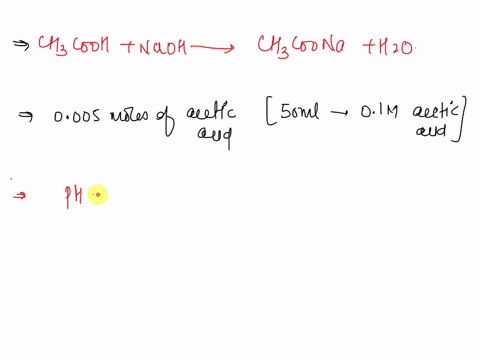 ⇒ CH3COOH + NaOH ⟶ CH3COONa + H2O.
⇒ 0.005 moles of acetic acid [50ml → 0.1M acetic acid]
→ PH